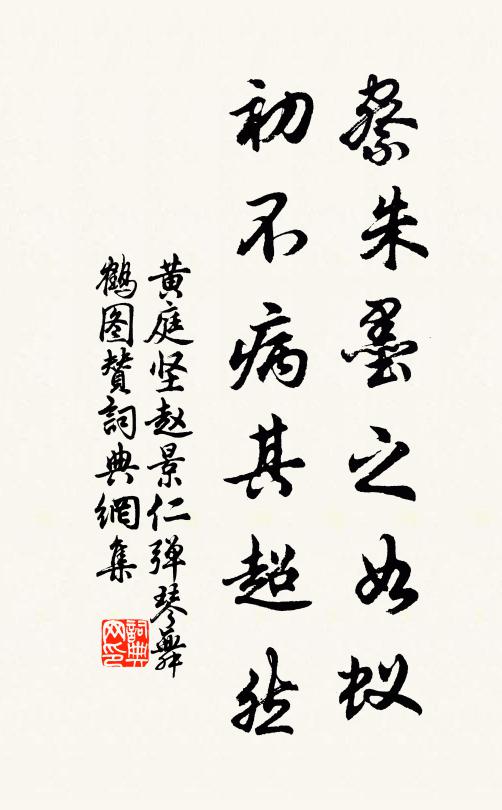 察朱墨之如蚁
初不病其超然
黄庭坚赵景仁弹琴舞
鹤图赞詞典網集
詞典网印